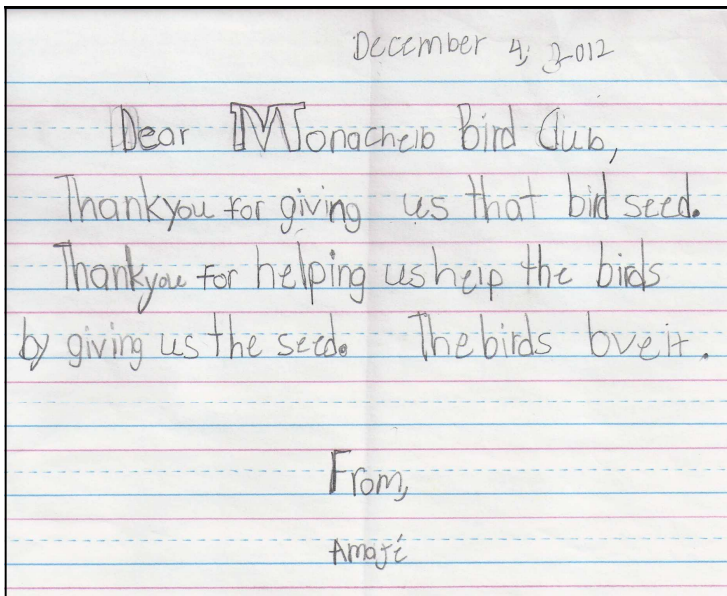 December 4, 2012
Dear Monacheib Bird Club,
Thankyou for giving us that bird seed.
Thankyou for helping us help the birds
by giving us the seed. The birds love it.
From,
Amaji